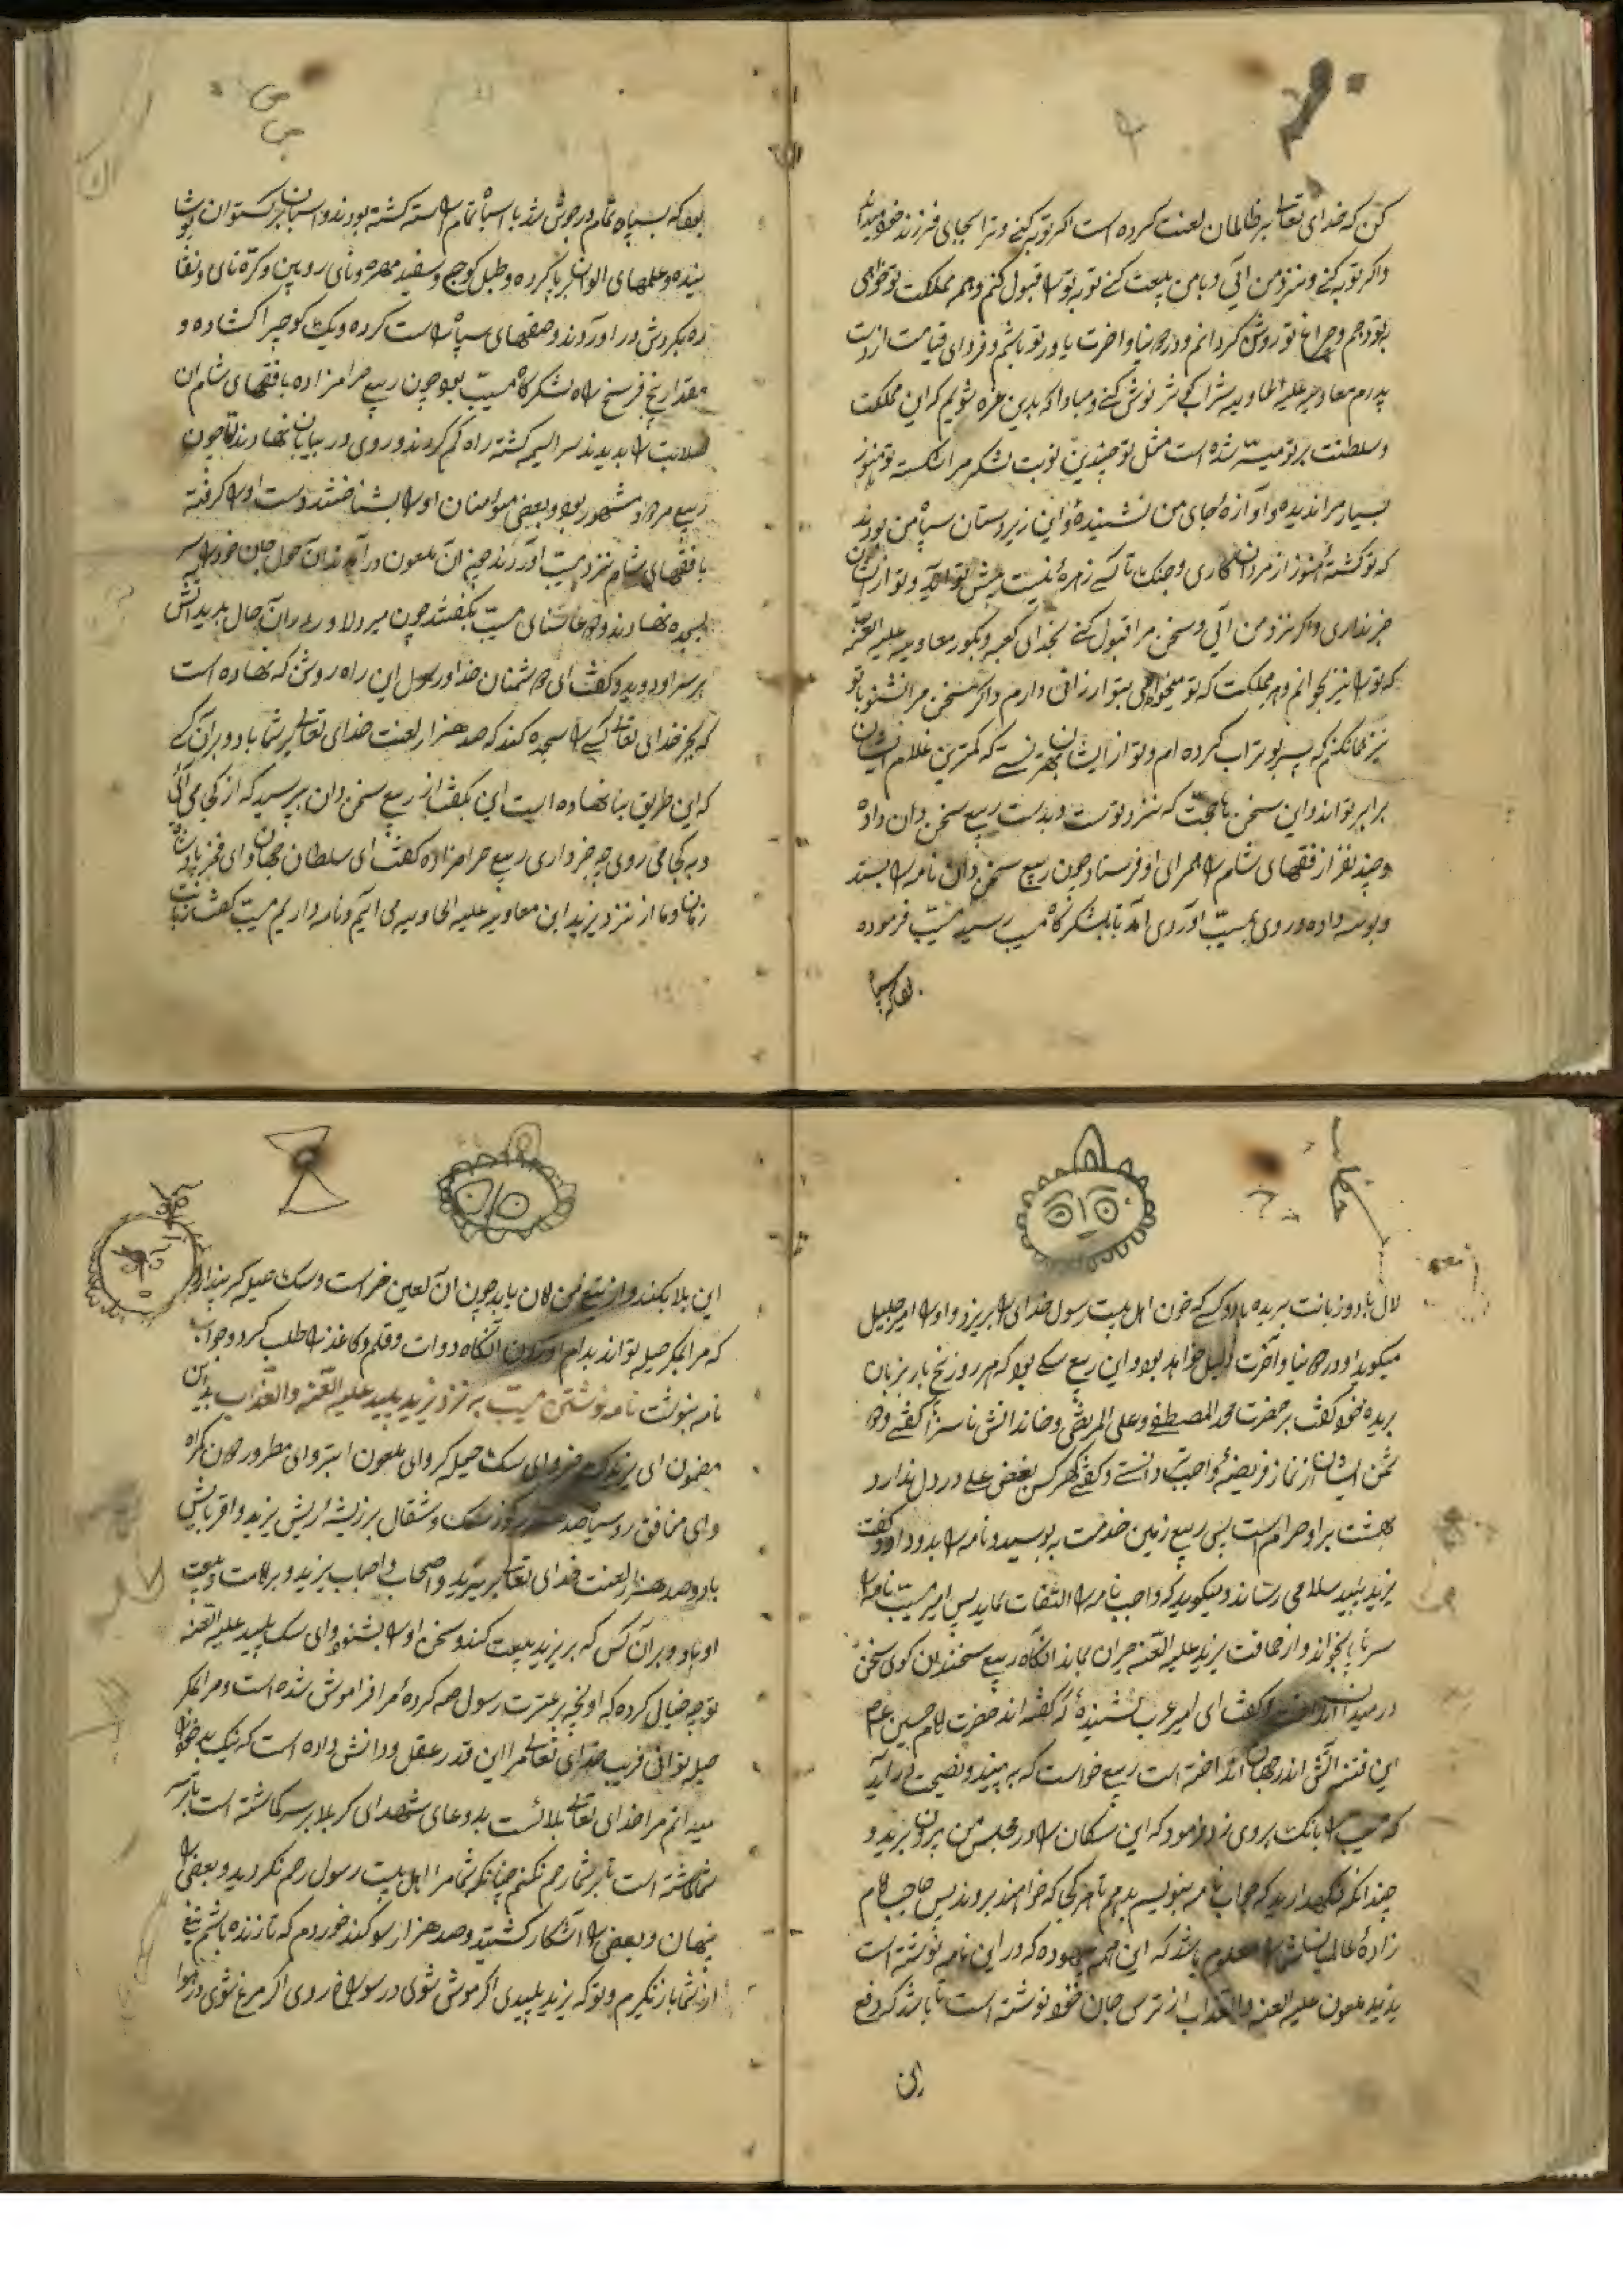 کن که خدای تعالی بر ظالمان لعنت کرده است اکر توبه کنے و ترا بجای فرزند خود میدانم
و اکر توبه کنے و نزد من آیی و با من بیعت کنے توبه تو را قبول کنم و همه مملکت تو خواهی
بتو دهم و چراغ تو روشن کردانم و در دنیا و اخرت یاور تو باشم و فردای قیامت از دست
پدرم معاویه علیه الهاویه شراب کوثر نوش کنے و مبادا که بدین غره شویم که این مملکت
و سلطنت بر تو میسّر شده است مثل تو چندین نوبت لشکر مرا شکسته تو هنوز
بسیار مرا ندیده و آوازهٔ جای من نشنیدهٔ و این زیردستان سپاه من بودند
که تو کشتهٔ هنوز از مردان کاری و جنک تا کسے زهرهٔ نیست پیش تو آید و تو از ایشان
خبر نداری و اکر نزد من آیی و سخن مرا قبول کنے بخدای کعبه و بکور معاویه علیه العنه
که تو را نیز بخوانم و هر مملکت که تو میخواهی بتو ارزانی دارم و اکر سخن مرا نشنو با تو
نیز همان کنم که پسر بوتراب کرده ام و تو از ایشان بهتر نسے که کمترین غلام ایشان
برابر تو اند و این سخن با حجت که نزد توست و بدست ربیع سخن دان داد
و چند نفر از فقهای شام را همرای او فرستاد چون ربیع سخن دان نامه را بستد
و بوسه داده و روی بمسیّب آورد می آمد تا بلشکرکاه مسیب رسید مسیّب فرموده
بود که سپاه
بود که سپاه تمام در جوش شد با اسپاه تمام آراسته کشته بودند و اسبان برکستوان پوشا
نیده و علمهای الوان برپا کرده و طبل کوچ و سفید مهره و نای رویین و کرّه نای و نقا
ره بکردش در اورآوند و صفهای سپاه راست کرده و یک کوچه را کشاده و
مقدار پنج فرسخ راه لشکرکاه مسیّب بود چون ربیع حرامزاده با فقهای شام ان
صلابت را بدیدند سراسیمه کشته راه کم کردند و روی در بیابان نهادند تا چون
ربیع مرد مشهور بود و بعضی مؤمنان او را بشناختند دست او را کرفته
با فقهای شام نزد مسیب آورند چون آن ملعون در آمد ندان حول جان خود را سر
بسجده نهادند و دعا ثنای مسیّب بکفتند چون میر دلاور ایران حال بدید آتش
بر سر او دوید و کفت ای دشمنان خدا و رسول این راه روشن که نهاده است
که بجز خدای تعالی کسے را سجده کند که صد هزار لعنت خدای تعالی بر شما باد و بر آن کے
که این طریق بنا نهاده است این بکفت از ربیع سخن دان بپرسید که از کجا می آئی
و به کجا می روی چه خبر داری ربیع حرامزاده کفت ای سلطان جهان و ای فخر پادشاه
زمان و ما از نزد یزید ابن معاویه علیه الهاویه می ایم و نامه داریم مسیب کفت زبانت
لال باد و زبانت بریده باد و کسے که خون اهل بیت رسول خدای را بریزد و او را امیر جلیل
میکوید او در دنیا و آخرت ذلیل خواهد بود و این ربیع سکے بود که هر روز پنج بار بزبان
بریده خود کفت بر حضرت محمد المصطفے و علی المرتضی و خاندانش ناسزا کفتے و د
شمن ایشان از نماز فریضه و واجبات دانستے و کفتے که هر کس بغض علے در دل ندارد
بهشت بر او حرام است پس ربیع زمین خدمت ببوسید و نامه را بدو داد و کفت
یزید پلید سلام می رساند و میکوید که واجب نامه را التفات نماید پس امیر مسیّب نامه را
سر تا پا بخواند و از حماقت یزید علیه العنه حیران بماند آنکاه ربیع سخندان کوی سخن
در میدان انداخت و کفت ای امیر عرب نشنیدهٔ که کفته اند حضرت امام حسین ع م
این فتنه آتش اندر جهان انداخته است ربیع خواست که به پند و نصیحت در آید
که مسیب بانک بروی زد و فرمود که این سکان را از مجلس من بیرون برید و
چندانکه نکهدارید که جواب نامه بنویسم بدهم تا هر کجا که خواهند بروند پس صاحب امام
زادهٔ عالی شانش را معلوم باشد که این همه بیهوده که در این نامه نوشته است
یزید ملعون علیه العنه و العذاب از ترس جان خود نوشته است تا باشد که دفع
این
این بلا بکند و از تیغ من امان یابد چون آن لعین خر است و سک حیله کر پندارد
که مرا بمکر حیله تواند بدام اوردن آنکاه دوات و قلم و کاغذ را طلب کرد و جواب
نامه بنوشت نامه نوشتن مسیّب به نزد یزید پلید علیه العنه و العذاب بدین
مضمون ای یزید خر و ای سک حیله کر و ای ملعون ابتر و ای مطرود کمراه
و ای منافق روسیاه صد هزار سک و شغال بر ریشهٔ ریش یزید و اقربایش
باد و صد هزار لعنت خدای تعالی بر یزید و اصحاب و احباب یزید و بر امامت و بیعت
او باد و بر آن کس که بر یزید بیعت کند و سخن او را بشنود و ای سک پلید علیه العنه
تو چه خیال کرده که اونچه بر عترت رسول صم کردهٔ مرا فراموش شده است و مرا بمکر
حیله توانی فریب خدای تعالی مرا این قدر عقل و دانش داده است که نیک بے خود را
میدانم مرا خدای تعالی بلا ئست بدعای شهدای کربلا بر سر کماشته است تا بر سر
شما کشته است تا بر شما رحم نکنم چنانکه شما مر اهل بیت رسول رحم نکردید و بعضی را
پنهان و بعضی را آشکار کشتید و صد هزار سوکند خوردم که تا زنده باشم تیغ
از شما باز نکیرم و تو که یزید پلیدی اکر موش شوی در سوراخ روی اکر مرغ شوی در هوا